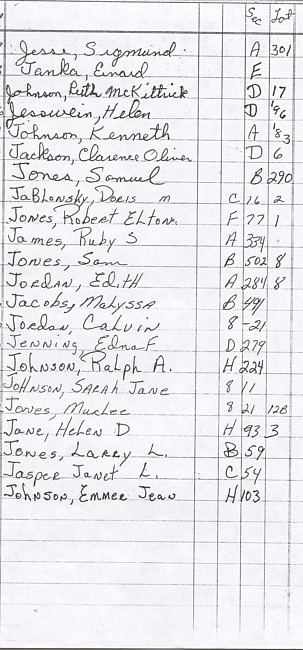 Sec Lot
Jesse, Sigmund A 301
Janka, Einard E
Johnson, Ruth McKittrick D 17
Jesswein, Helen D '96
Johnson, Kenneth A '83
Jackson, Clarence Oliver D 6
Jones, Samuel B 290
Jablonsky, Doris M C 16 2
Jones, Robert Elton F 77 1
James, Ruby S A 334
Jones, Sam B 502 8
Jordan, Edith A 284 8
Jacobs, Malyssa B 491
Jordan, Calvin 8 -21
Jenning, Edna F D 279
Johnson, Ralph A. H 224
Johnson, Sarah Jane 8 11
Jones, 8 21 128
Jane, Helen D H 93 3
Jones, Larry L. B 59
Jasper Janet L. C 54
Johnson, Emmee Jean H 103